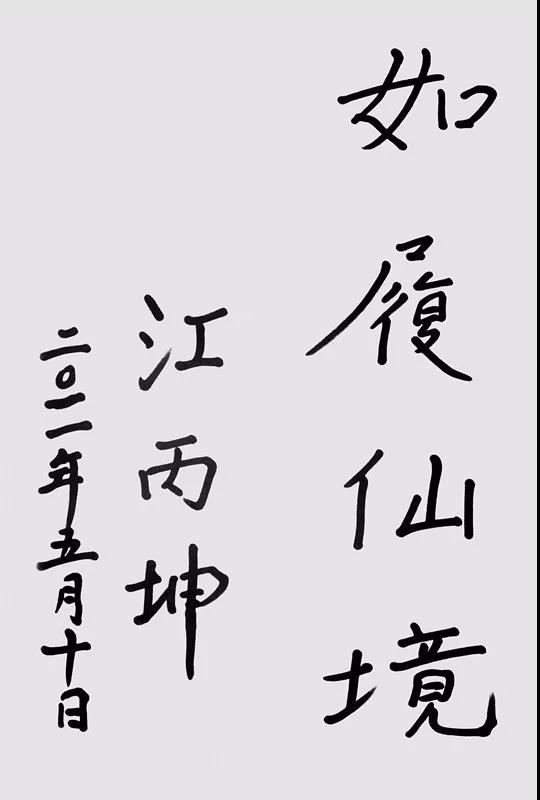 如履仙境
江丙坤
二〇一一年五月十日